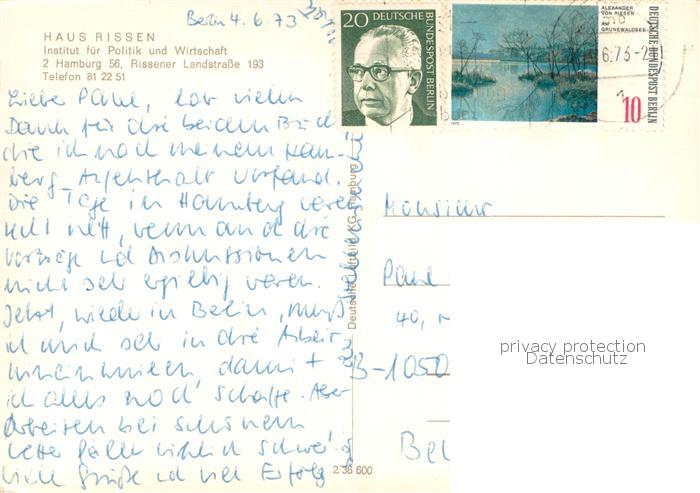 Berlin 4.6.73
HAUS RISSEN
Institut für Politik und Wirtschaft
2 Hamburg 56, Rissener Landstraße 193
Telefon 81 22 51
20 DEUTSCHE
BUNDESPOST BERLIN
ALEXANDER
VON RIESEN
GRUNEWALDSEE
DEUTSCHE BUNDESPOST BERLIN
10
1972
6.73-2
Lieber Paul, hab vielen
Dank für die beiden Büch
die ich nach meinem Ham-
berg-Aufenthalt vorfand.
Die Tage in Hamburg waren
sehr nett, wenn auch die
Vorträge und Diskussionen
nicht sehr ergiebig waren.
Jetzt, wieder in Berlin, muß
ich mich sehr in die Arbeit
damit
ich alles noch schaffe. Aber
Arbeiten bei schönem
Wetter fällt wirklich schwer
Viele Grüße und viel Erfolg
Deutsche KG. Hamburg
2 36 600
Monsieur
Paul
40,
B-1050
Bel
privacy protection
Datenschutz